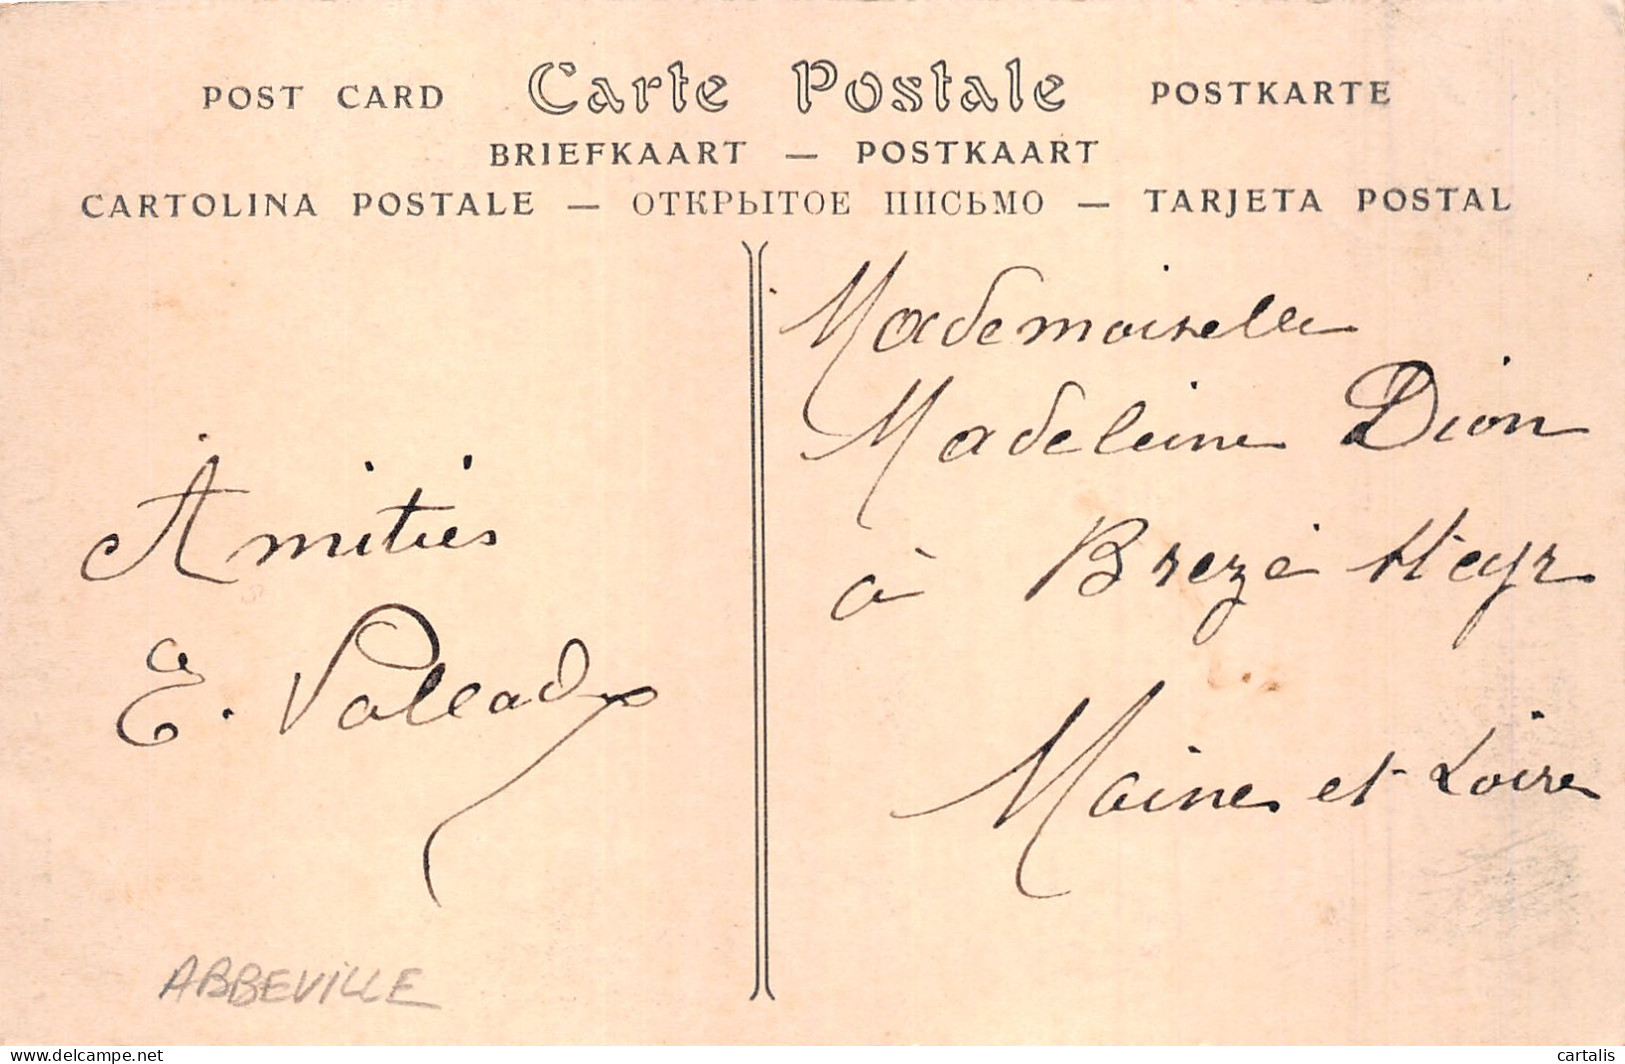 POST CARD Carte Postale POSTKARTE
BRIEFKAART — POSTKAART
CARTOLINA POSTALE — ОТКРЫТОЕ ПИСЬМО — TARJETA POSTAL
Amitiés
E.
ABBEVILLE
Mademoiselle
Madeleine Dion
à Brezé
Maine et Loire
delcampe.net
cartalis